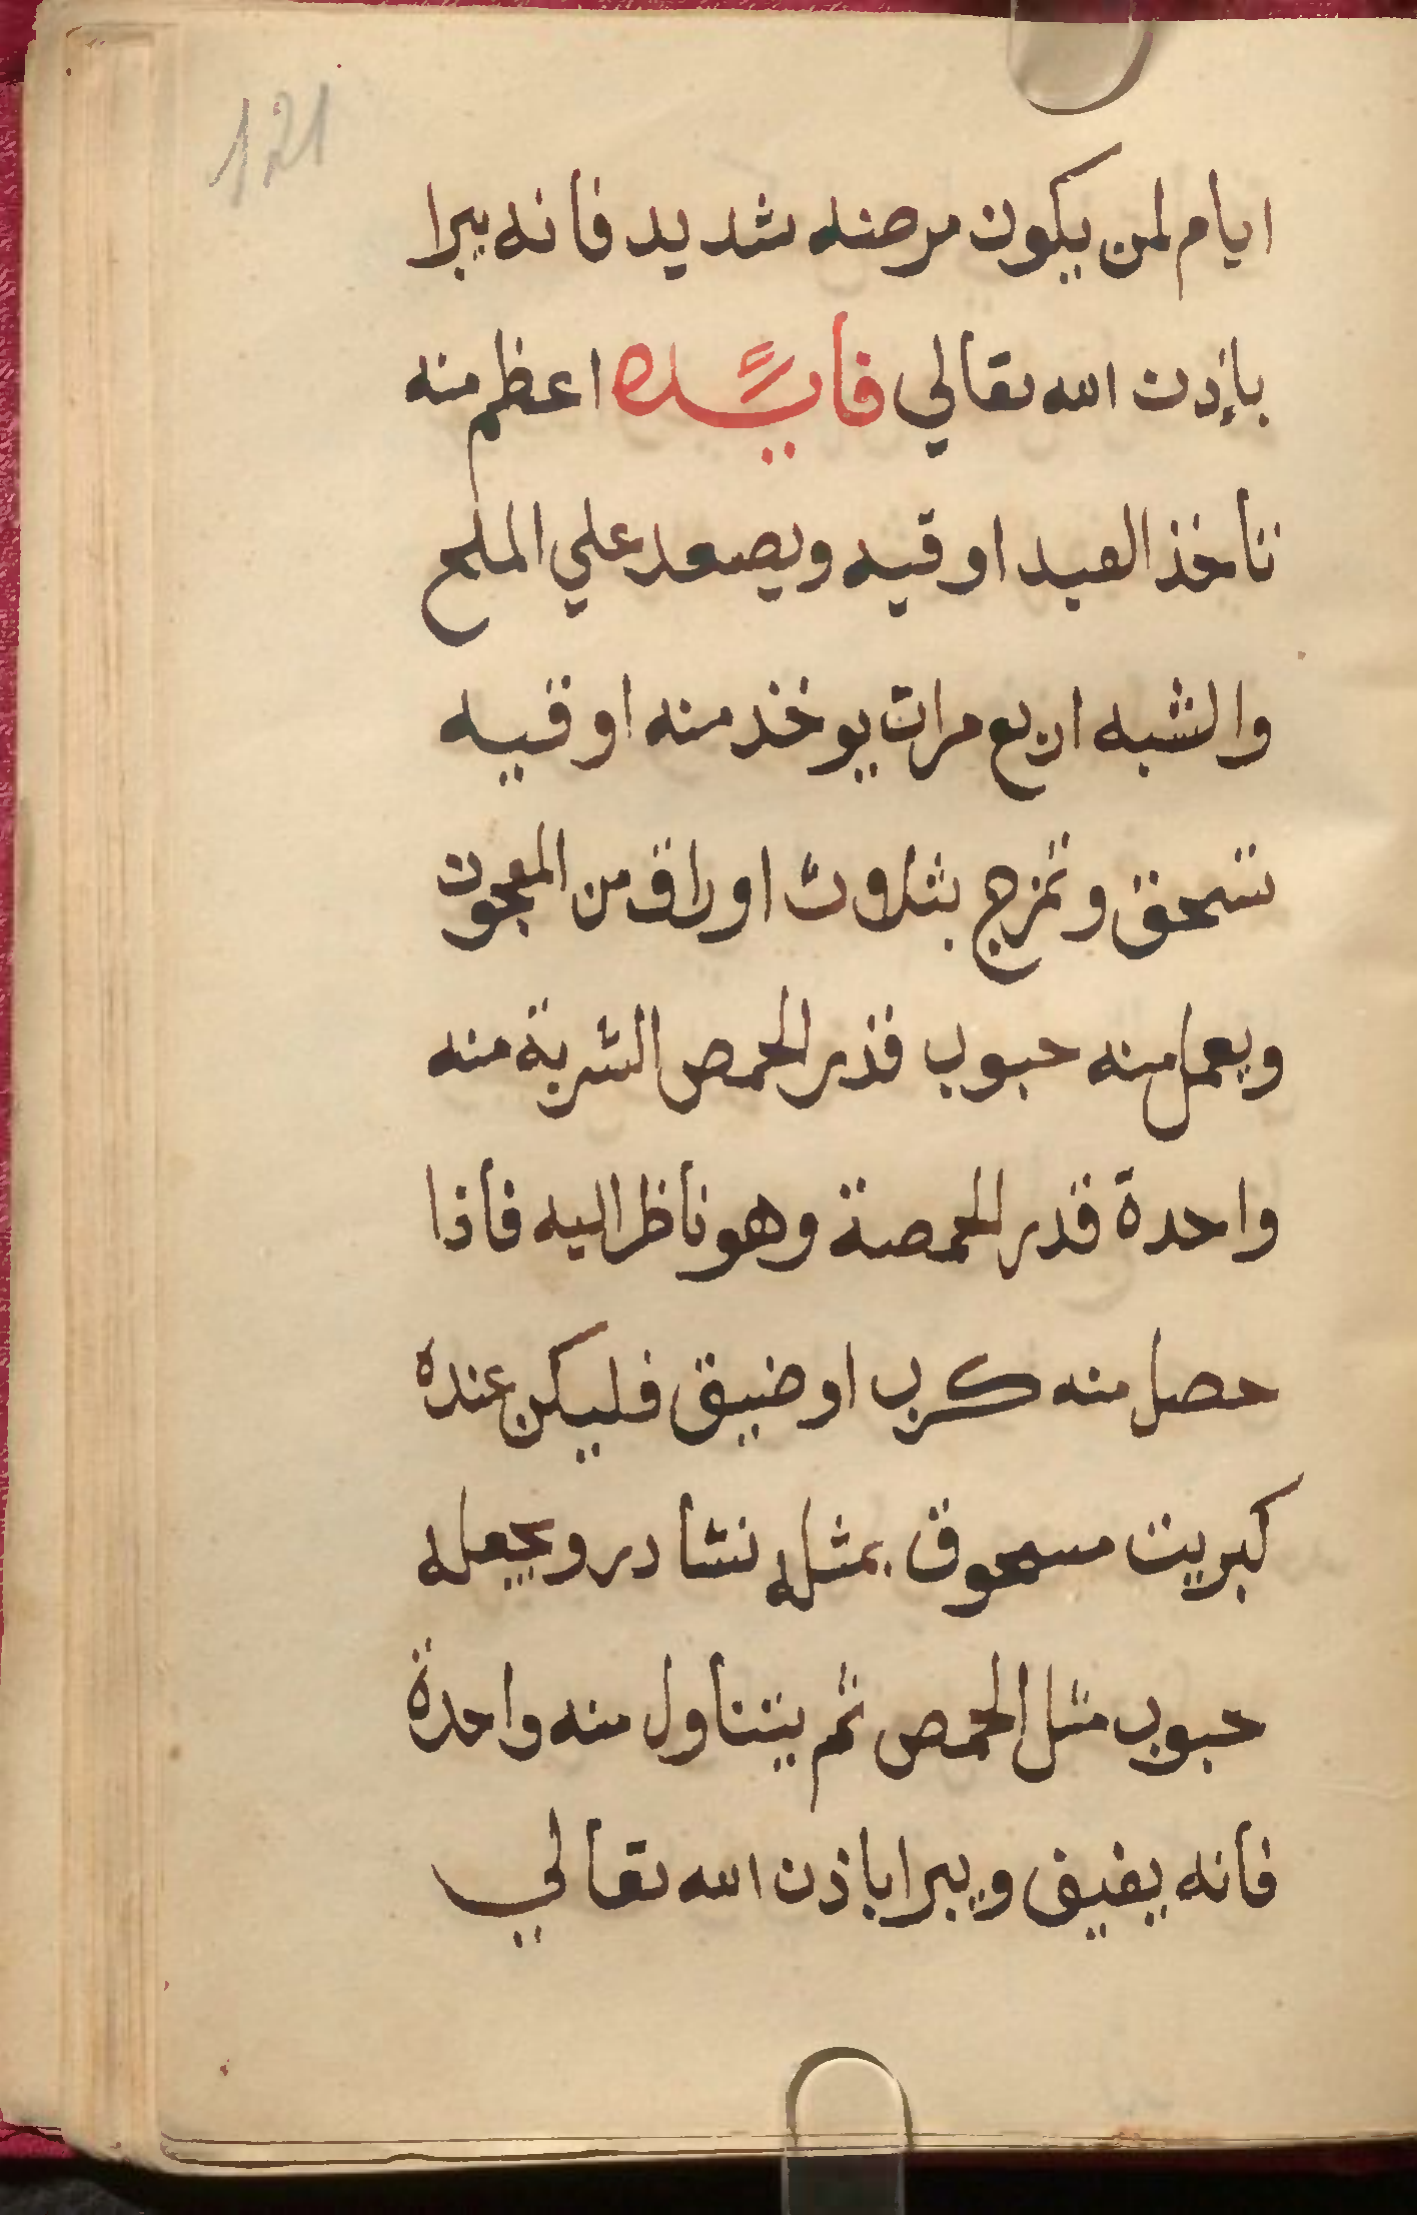 121
ايام لمن يكون مرضه شديد فانه يبرا
بإذن الله تعالي فايدة اعظم منه
تاخذ العبد اوقيه ويصعد علي الملح
والشبه اربع مرات يوخذ منه اوقيه
تسحق وتمزج بثلاوث اوراق من المعجون
ويعمل منه حبوب قدر الحمص الشربة منه
واحدة قدر الحمصة وهو ناظر اليه فاذا
حصل منه كرب او ضيق فليكن عنده
كبريت مسحوق بمثله نشادر ويجعله
حبوب مثل الحمص ثم يتناول منه واحدة
فانه يفيق ويبرا باذن الله تعالي